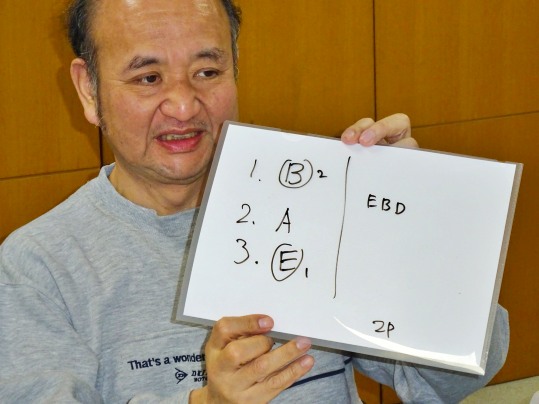 1. B 2
2. A
3. E 1
EBD
2P
That's a wonde